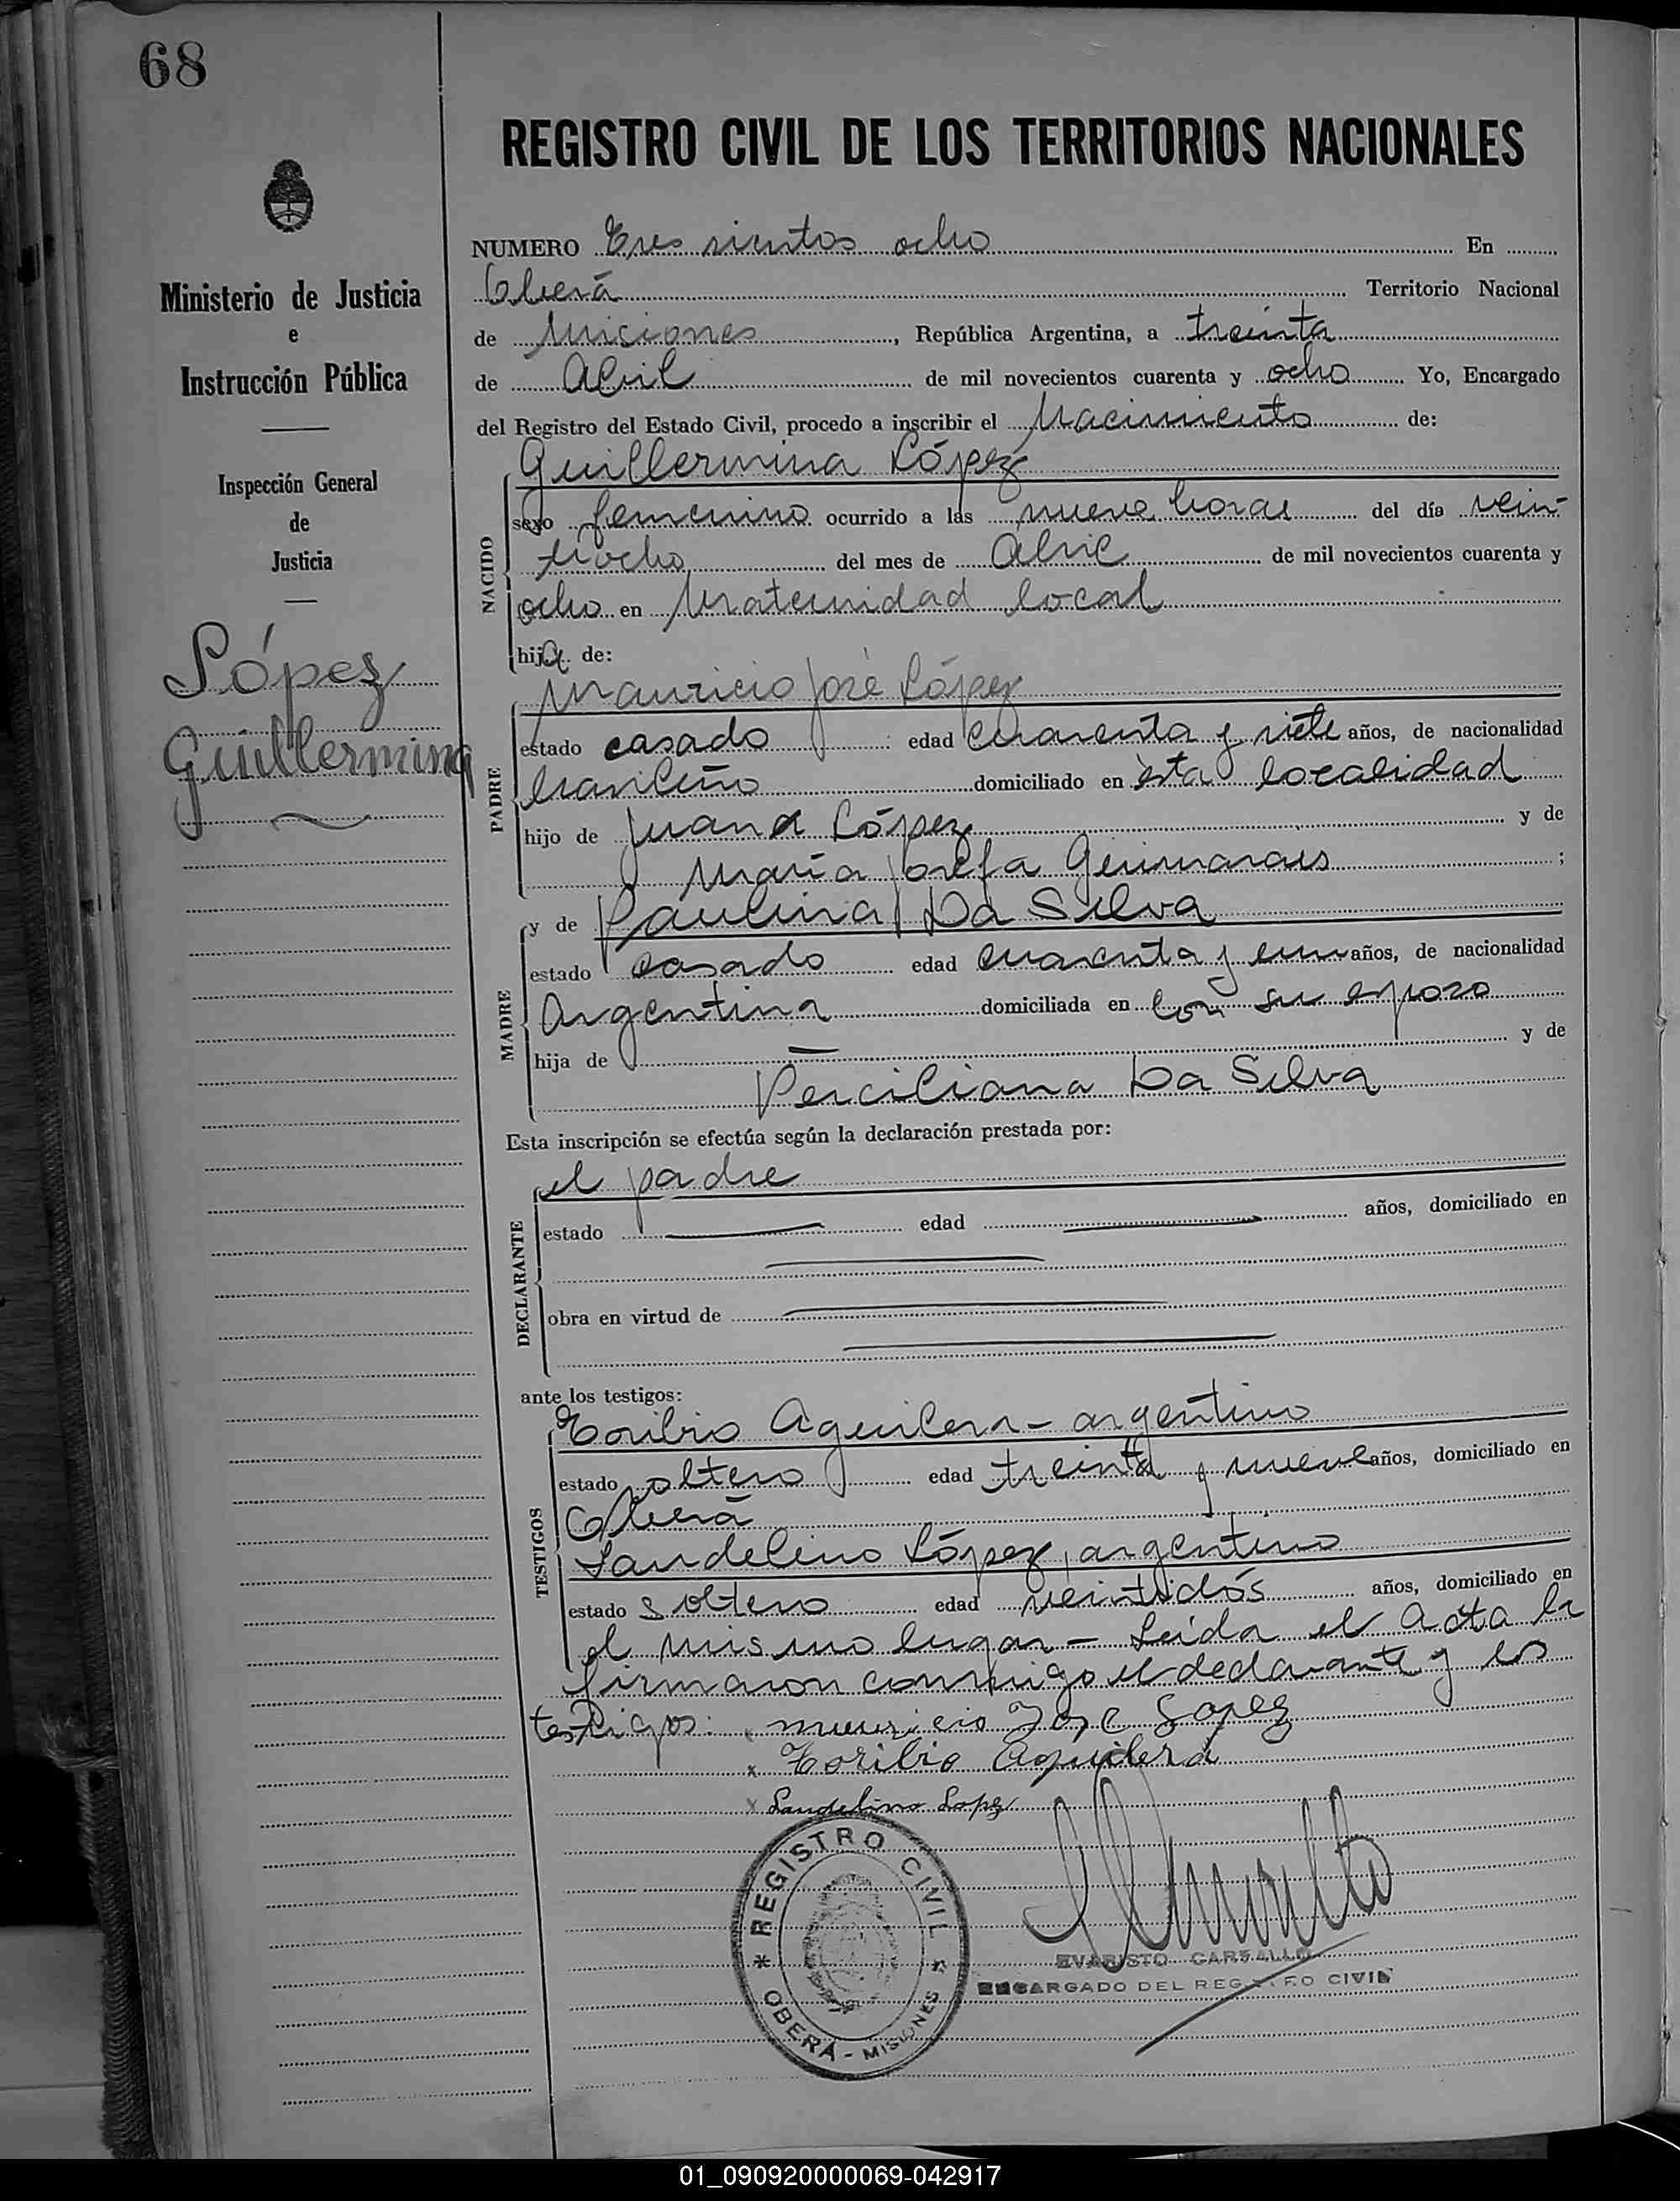 68
REGISTRO CIVIL DE LOS TERRITORIOS NACIONALES
Ministerio de Justicia
e
Instrucción Pública
Inspección General
de
Justicia
López
Guillermina
NUMERO Tres sientos ocho En
Oberá Territorio Nacional
de Misiones, República Argentina, a treinta
de Abril de mil novecientos cuarenta y ocho Yo, Encargado
del Registro del Estado Civil, procedo a inscribir el Nacimiento de:
NACIDO
Guillermina López
sexo femenino ocurrido a las nueve horas del día vein-
tiocho del mes de Abril de mil novecientos cuarenta y
ocho en Maternidad local
hija de:
PADRE
Mauricio José López
estado casado edad cuarenta y siete años, de nacionalidad
brasileño domiciliado en esta localidad
hijo de Juana López y de
María Josefa Guimaraes ;
MADRE
y de Paulina Da Silva
estado casado edad cuarenta y un años, de nacionalidad
Argentina domiciliada en con su esposo
hija de — y de
Perciliana Da Silva
Esta inscripción se efectúa según la declaración prestada por:
DECLARANTE
el padre
estado edad años, domiciliado en
obra en virtud de
ante los testigos:
TESTIGOS
Toribio Aguilera - argentino
estado soltero edad treinta y nueve años, domiciliado en
Oberá
Landelino López, argentino
estado soltero edad veintidós años, domiciliado en
el mismo lugar - Leída el Acta la
firmaron conmigo el declarante y los
testigos: Mauricio Jose Lopez
x Toribio Aguilera
x Landelino Lopez
REGISTRO CIVIL
OBERÁ - MISIONES
EVARISTO CARBALLO
ENCARGADO DEL REGISTRO CIVIL
01_090920000069-042917